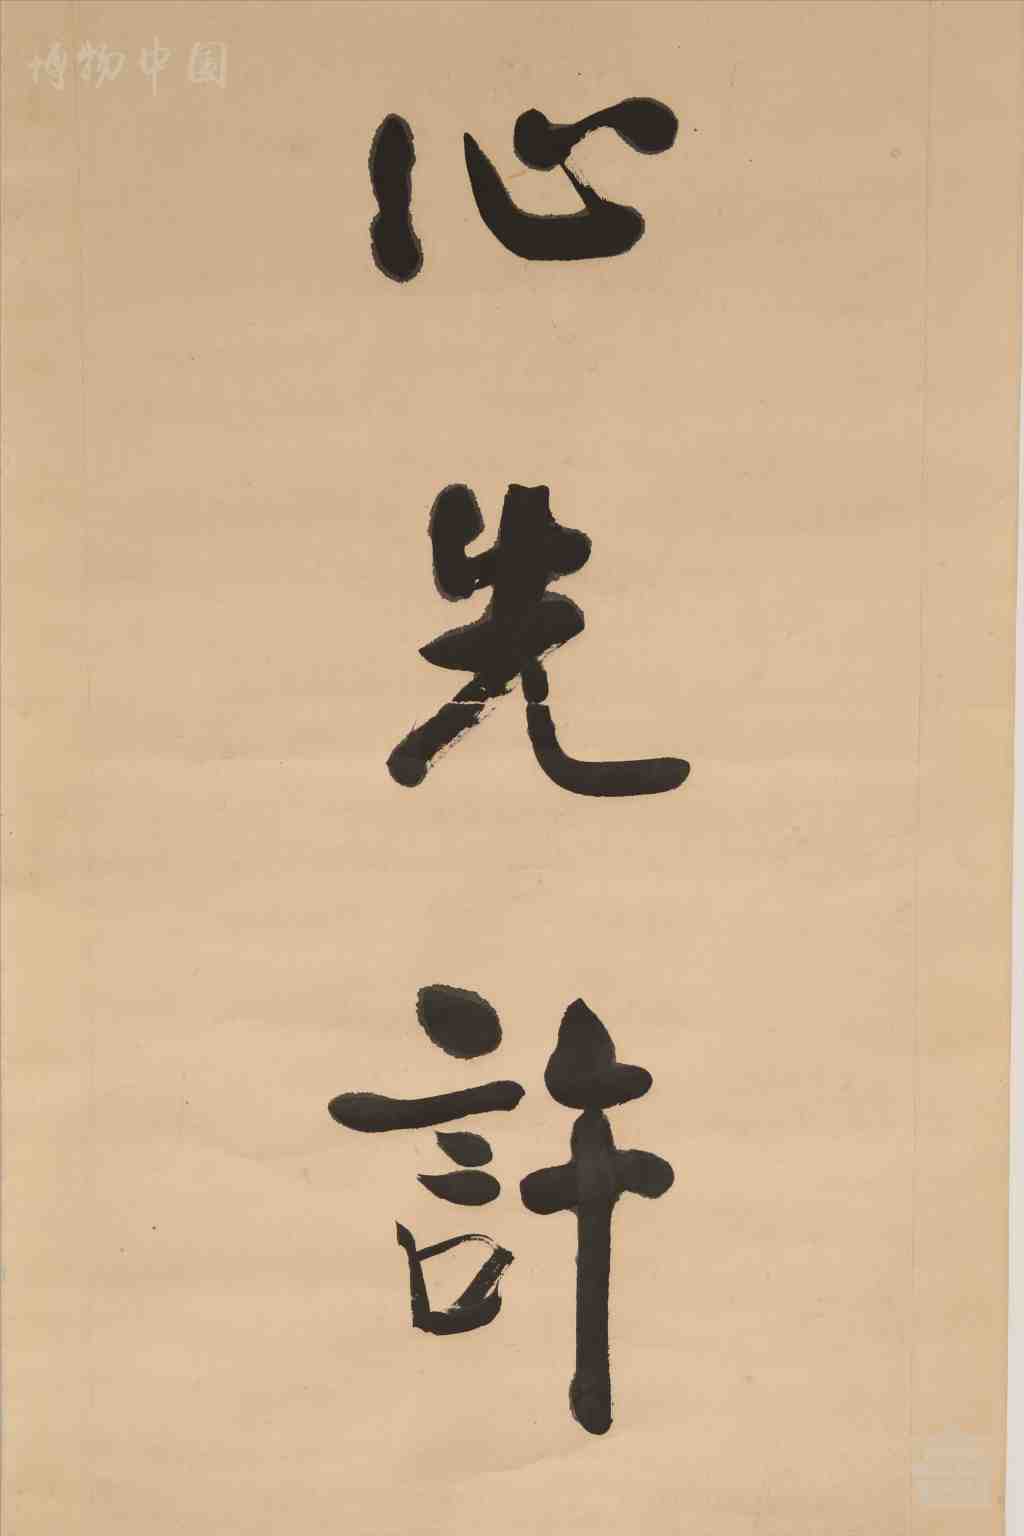 博物中国
心先許